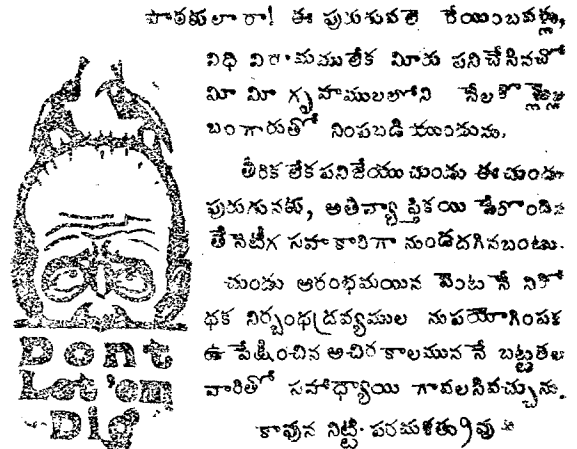 పాఠకులారా! ఈ పురుగువలె రేయింబవళ్లు,
విధి విరామములేక మీరు పనిచేసినచో
మీ మీ గృహములలోని నేల
బంగారుతో నింపబడి యుండును.
తీరిక లేక పనిజేయు చుండు ఈ చుండు
పురుగునకు, అతివ్యాప్తికయి పేరొందిన
తేనెటీగ సహకారిగా నుండదగినబంటు.
చుండు ఆరంభమయిన వెంటనే నిరో
ధక నిర్బంధద్రవ్యముల నుపయోగింపక
ఉపేక్షించిన అచిరకాలముననే బట్టతల
వారితో సహాధ్యాయి గావలసివచ్చును.
కావున నిట్టి
Dont
Let 'em
Dig